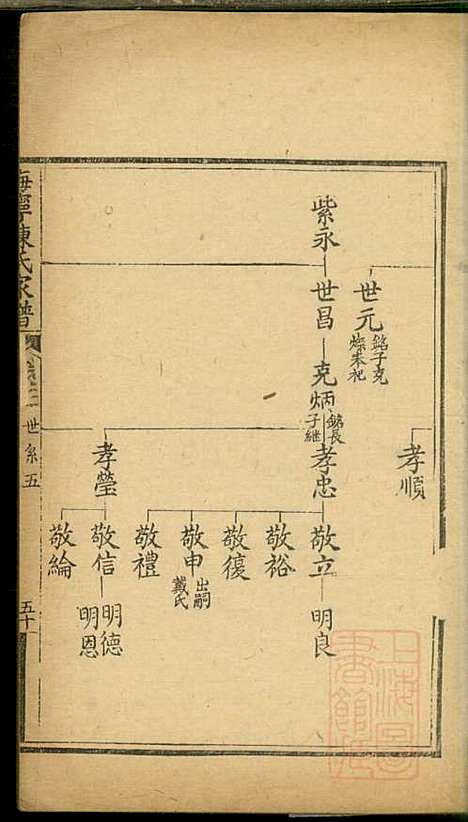 紫永
世元
銘子克
燦未祀
世昌
克炳
銘長
子繼
孝順
孝忠
孝瑩
敬立
敬裕
敬復
敬申
出嗣
戴氏
敬禮
敬信
敬綸
明良
明德
明恩
海寧陳氏家譜
卷二
世系五
五十
上海圖
書館